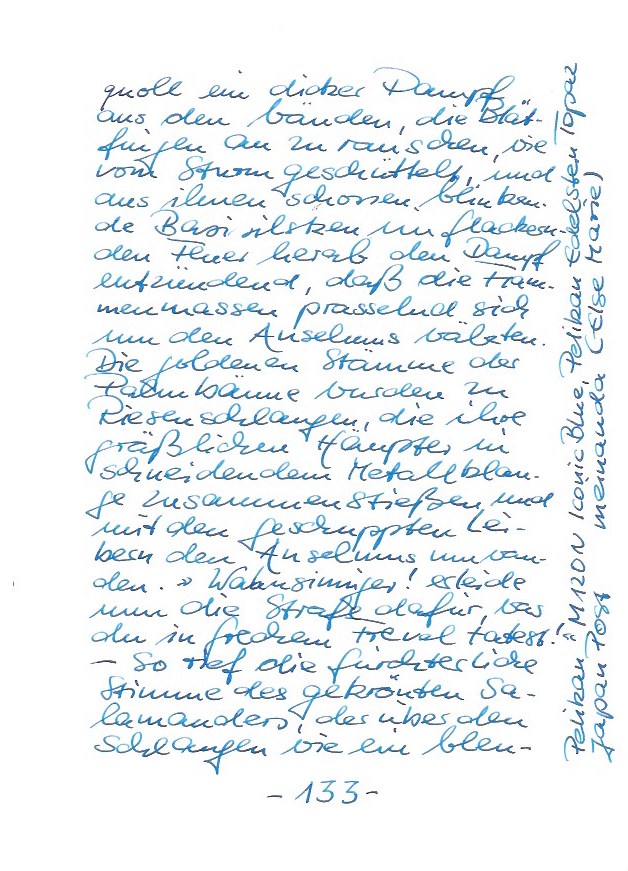 quoll ein dicker Dampf
aus den Wänden, die Blät-
fingen an zu rauschen, wie
vom Sturm geschüttelt, und
aus ihnen schossen blinken-
de Basilisken im flackern-
den Feuer herab den Dampf
entzündend, daß die Flam-
menmassen prasselnd sich
um den Anselmus wälzten.
Die goldenen Stämme der
Palmbäume wurden zu
Riesenschlangen, die ihre
gräßlichen Häupter in
schneidendem Metallklan-
ge zusammenstießen und
mit den geschuppten Lei-
bern den Anselmus umwan-
den. » Wahnsinniger! erleide
nun die Strafe dafür, was
du in frechem Frevel tatest!"
– So rief die fürchterliche
Stimme des gekrönten Sa-
lamanders, der über den
Schlangen wie ein blen-
- 133 -
Pelikan "M120N Iconic Blue, Pelikan Edelstein Topaz
Japan Post meinanda (Else Marie)